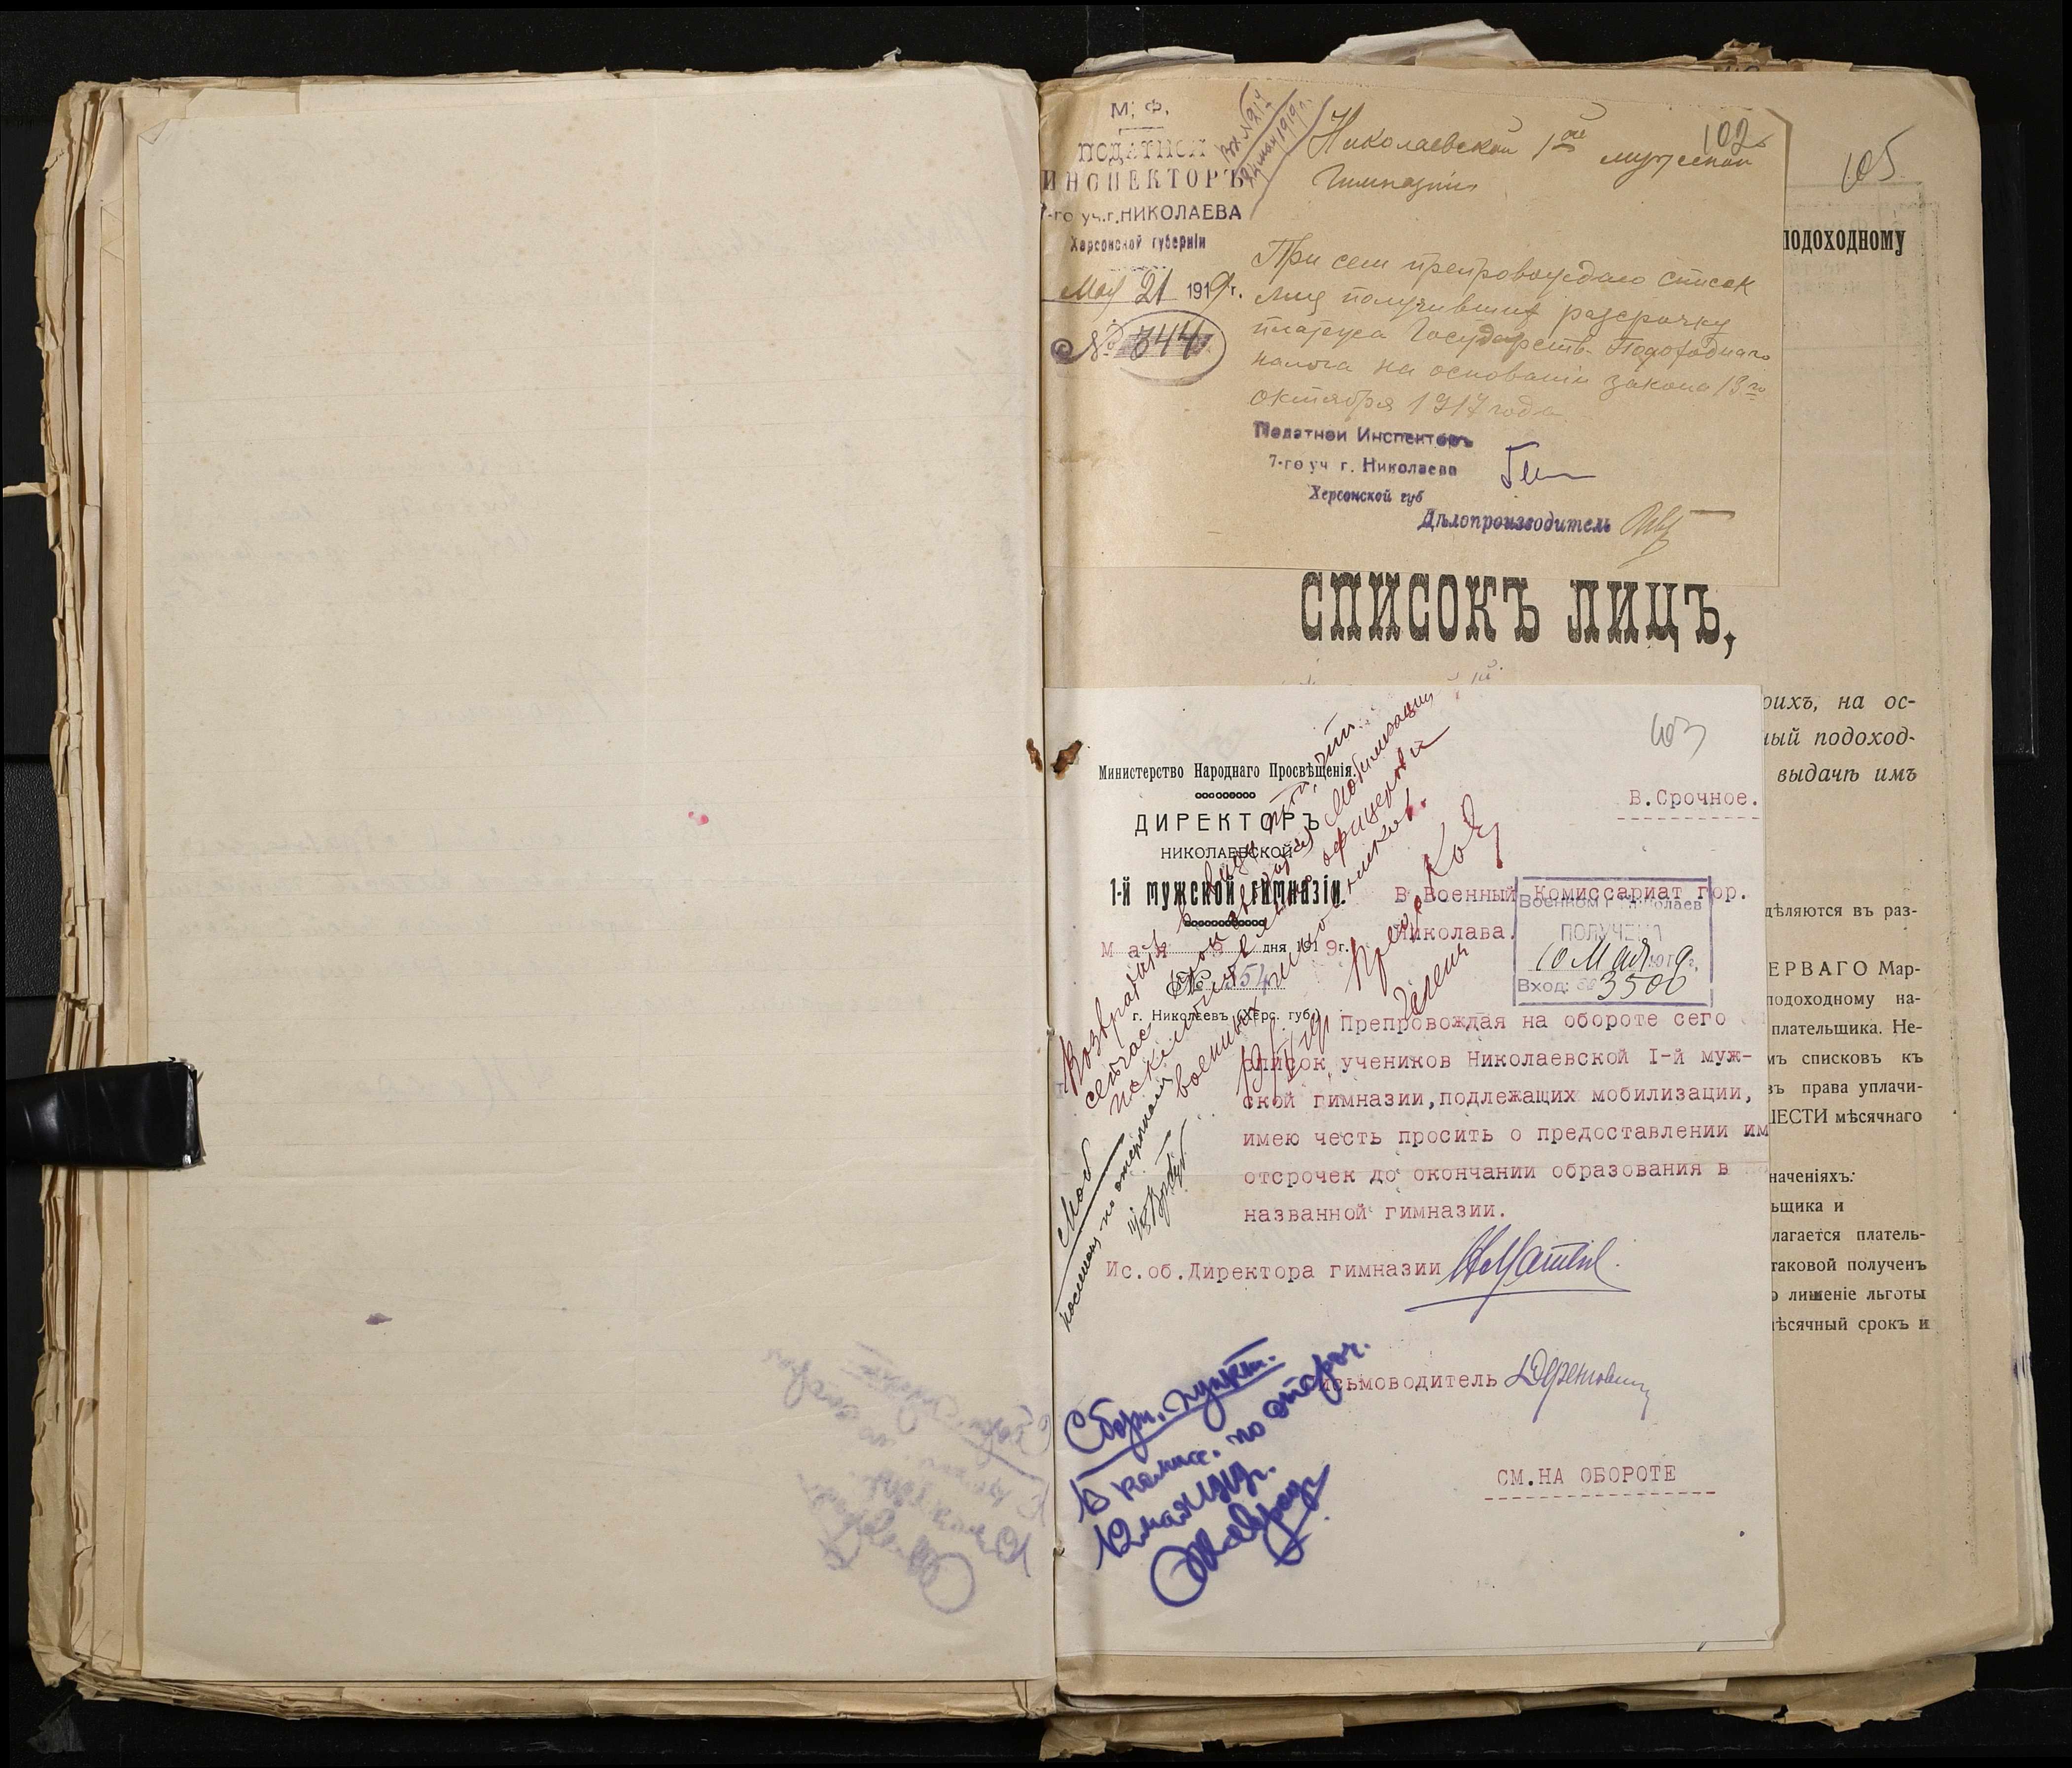 М. Ф.
ПОДАТНОЙ
ИНСПЕКТОРЪ
7-го уч.г.НИКОЛАЕВА
Херсонской губерніи
Мая 21 1919г.
№ 344
Вх. №214
24 мая 1919 г.
102
Николаевской 1ой мужской
Гимназіи
При сем препровождаю список
лиц получивших разсрочку
платежа Государств. Подоходнаго
налога на основании закона 13го
октября 1917 года
Податной Инспекторъ
7-го уч г. Николаева
Херсонской губ
Дѣлопроизводитель
105
подоходному
СПИСОКЪ ЛИЦЪ,
оихъ, на ос-
ный подоход-
выдачѣ имъ
дѣляются въ раз-
ЕРВАГО Мар-
подоходному на-
плательщика. Не-
мъ списковъ къ
въ права уплачи-
ШЕСТИ мѣсячнаго
наченіяхъ:
ьщика и
лагается платель-
таковой полученъ
о лишеніе льготы
мѣсячный срокъ и
103
Министерство Народнаго Просвѣщенія.
ДИРЕКТОРЪ
НИКОЛАЕВСКОЙ
1-й мужской гимназіи.
Мая 5 дня 1919г.
№ 554
г. Николаевъ (Херс. губ.)
В.Срочное.
В Военный Комиссариат гор.
Николава.
Военком г Николаев
ПОЛУЧЕНА
10 Мая 1919г.
Вход: № 3500
Препровождая на обороте сего
список учеников Николаевской I-й муж-
ской гимназии,подлежащих мобилизации,
имею честь просить о предоставлении им
отсрочек до окончании образования в
названной гимназии.
Ис.об.Директора гимназии
Письмоводитель
СМ.НА ОБОРОТЕ
Возвратить
сейчас
мобилизации
военных чиновников.
Моб
Сборн. пункт.
В комис. по отсроч.
12 мая 1919г.